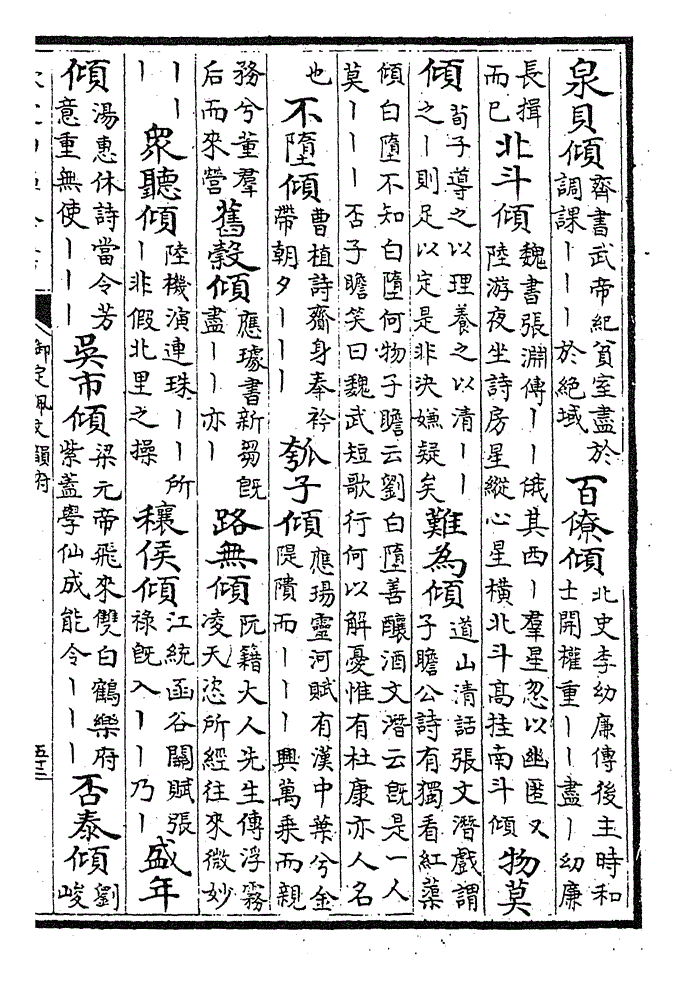 泉貝傾
齊書武帝紀貧室盡於
調課丨丨丨於絕域
百僚傾
北史李幼廉傳後主時和
士開權重丨丨盡丨幼廉
長揖
而已
北斗傾
魏書張淵傳丨丨俄其西丨羣星忽以幽匿又
陸游夜坐詩房星縱心星橫北斗高挂南斗傾
物莫
傾
荀子導之以理養之以清丨丨
之丨則足以定是非決嫌疑矣
難為傾
道山清話張文潛戲謂
子瞻公詩有獨看紅蕖
傾白墮不知白墮何物子瞻云劉白墮善釀酒文潛云旣是一人
莫丨丨丨否子瞻笑曰魏武短歌行何以解憂惟有杜康亦人名
也
不墮傾
曹植詩齋身奉衿
帶朝夕丨丨丨
瓠子傾
應瑒靈河賦有漢中葉兮金
隄隤而丨丨丨興萬乘而親
務兮董羣
后而來營
舊穀傾
應璩書新芻旣
盡丨丨亦丨
路無傾
阮籍大人先生傳浮霧
凌天恣所經往來微妙
丨丨
丨
眾聽傾
陸機演連珠丨丨所
丨非假北里之操
穰侯傾
江統函谷關賦張
祿旣入丨丨乃丨
盛年
傾
湯惠休詩當令芳
意重無使丨丨丨
吳市傾
梁元帝飛來雙白鶴樂府
紫蓋學仙成能令丨丨丨
否泰傾
劉
峻
御定佩文韻府